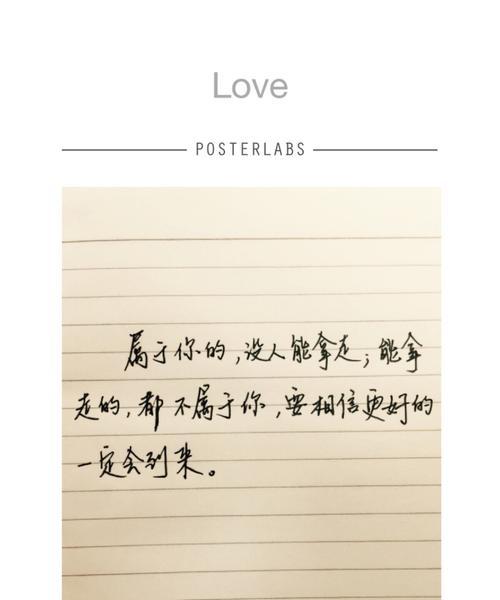 Love
POSTERLABS
属于你的,没人能拿走;能拿
走的,都不属于你,要相信更好的
一定会到来。